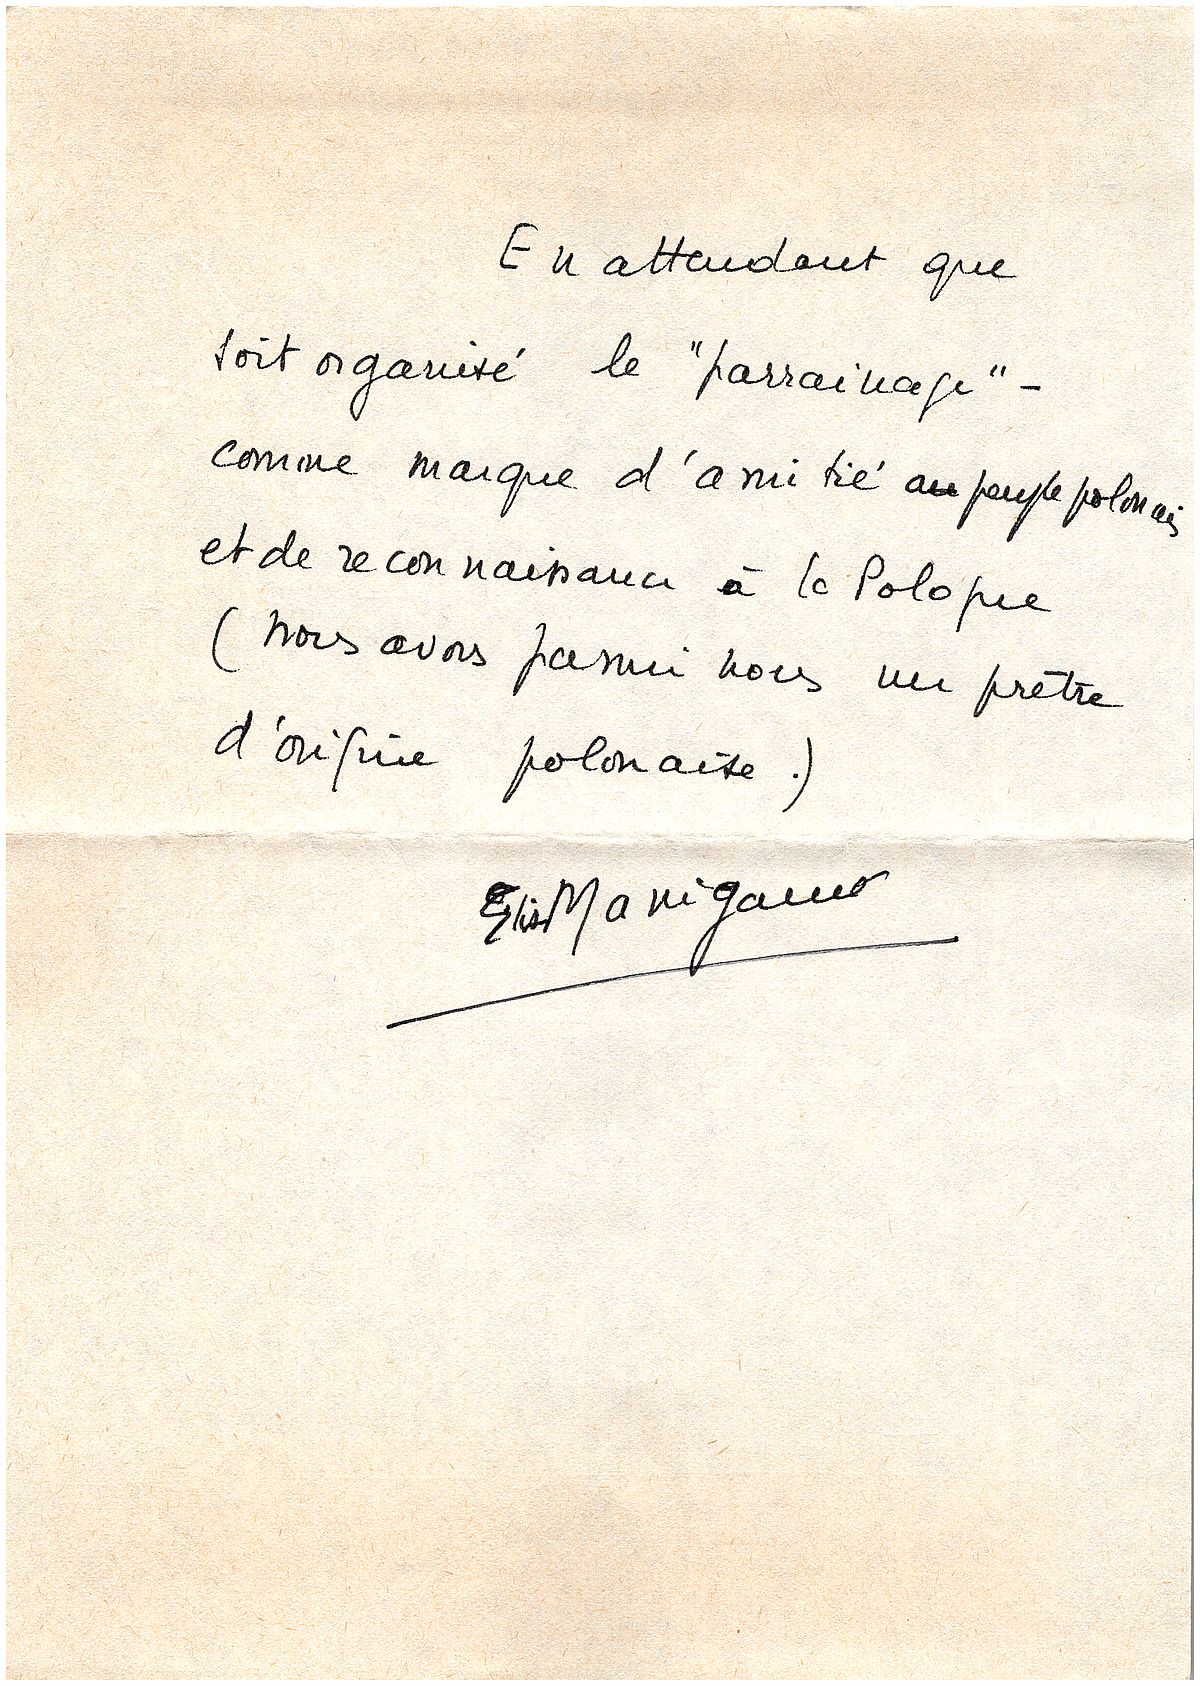 En attendant que
soit organisé le "parrainage" -
comme marque d'amitié au peuple polonais
et de reconnaissance à la Pologne
(nous avons parmi nous un prêtre
d'origine polonaise.)